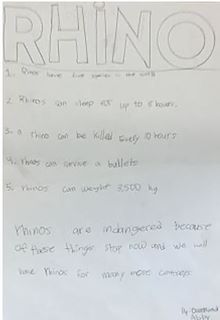 RHINO
1. Rhinos have five species in the world
2. Rhinos can sleep for up to 8 hours.
3. a rhino can be killed every 10 hours
4. rhinos can survive a bullets
5. rhinos can weight 3,500 kg
rhinos are indangered because
of these things stop now and we will
have rhinos for many more
By